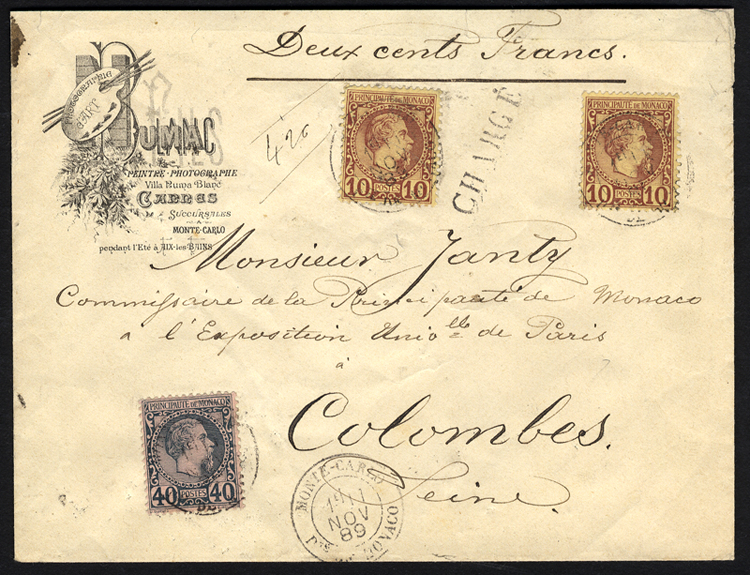 Deux cents Francs.
PHOTOGRAPHIE
D'ART
NUMA BLANC
PEINTRE-PHOTOGRAPHE
Villa Numa Blanc
CANNES
SUCCURSALES
A
MONTE-CARLO
pendant l'Eté à AIX-les-BAINS
420
PRINCIPAUTE DE MONACO
10 POSTES 10
CHARGÉ
PRINCIPAUTE DE MONACO
10 POSTES 10
Monsieur Janty
Commissaire de la Principauté de Monaco
a l'Exposition Univlle de Paris
à
Colombes.
Seine.
PRINCIPAUTE DE MONACO
40 POSTES 40
MONTE-CARLO
NOV
89
MONACO